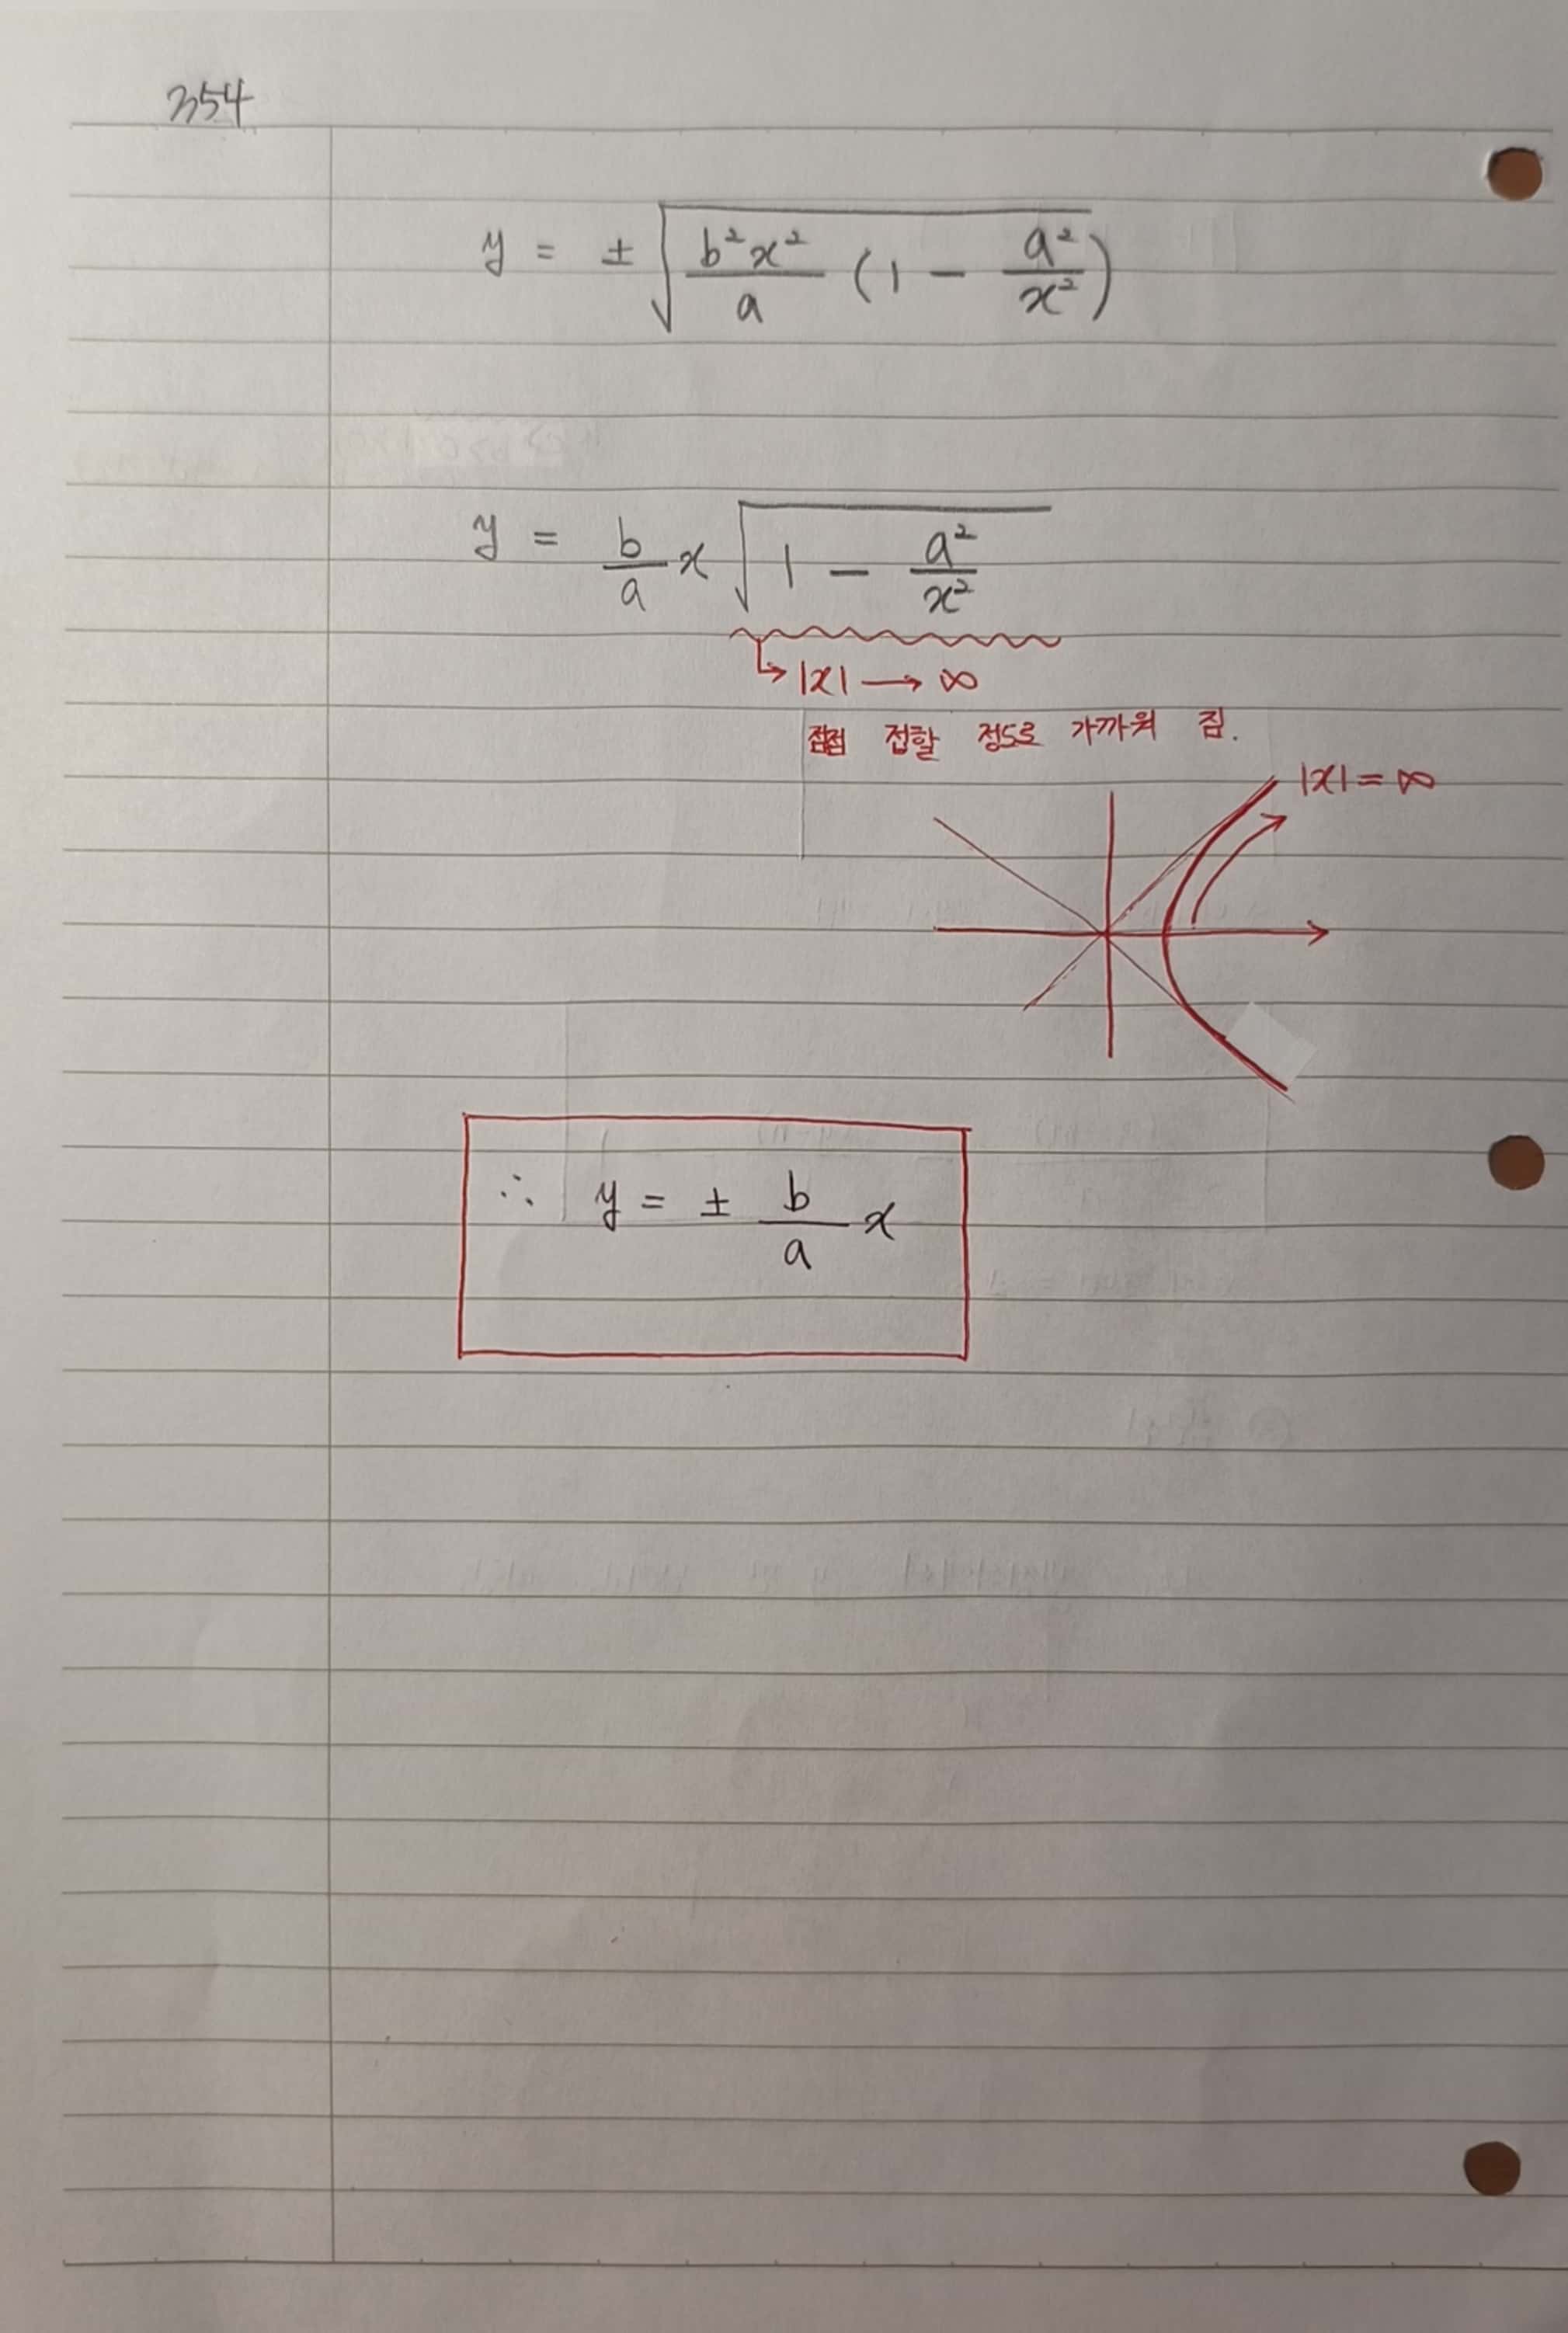 354
y = ± √(b²x²/a (1 − a²/x²))
y = b/a x √(1 − a²/x²)
↳ |x| → ∞
점점 접할 정도로 가까워 짐.
|x| = ∞
∴ y = ± b/a x